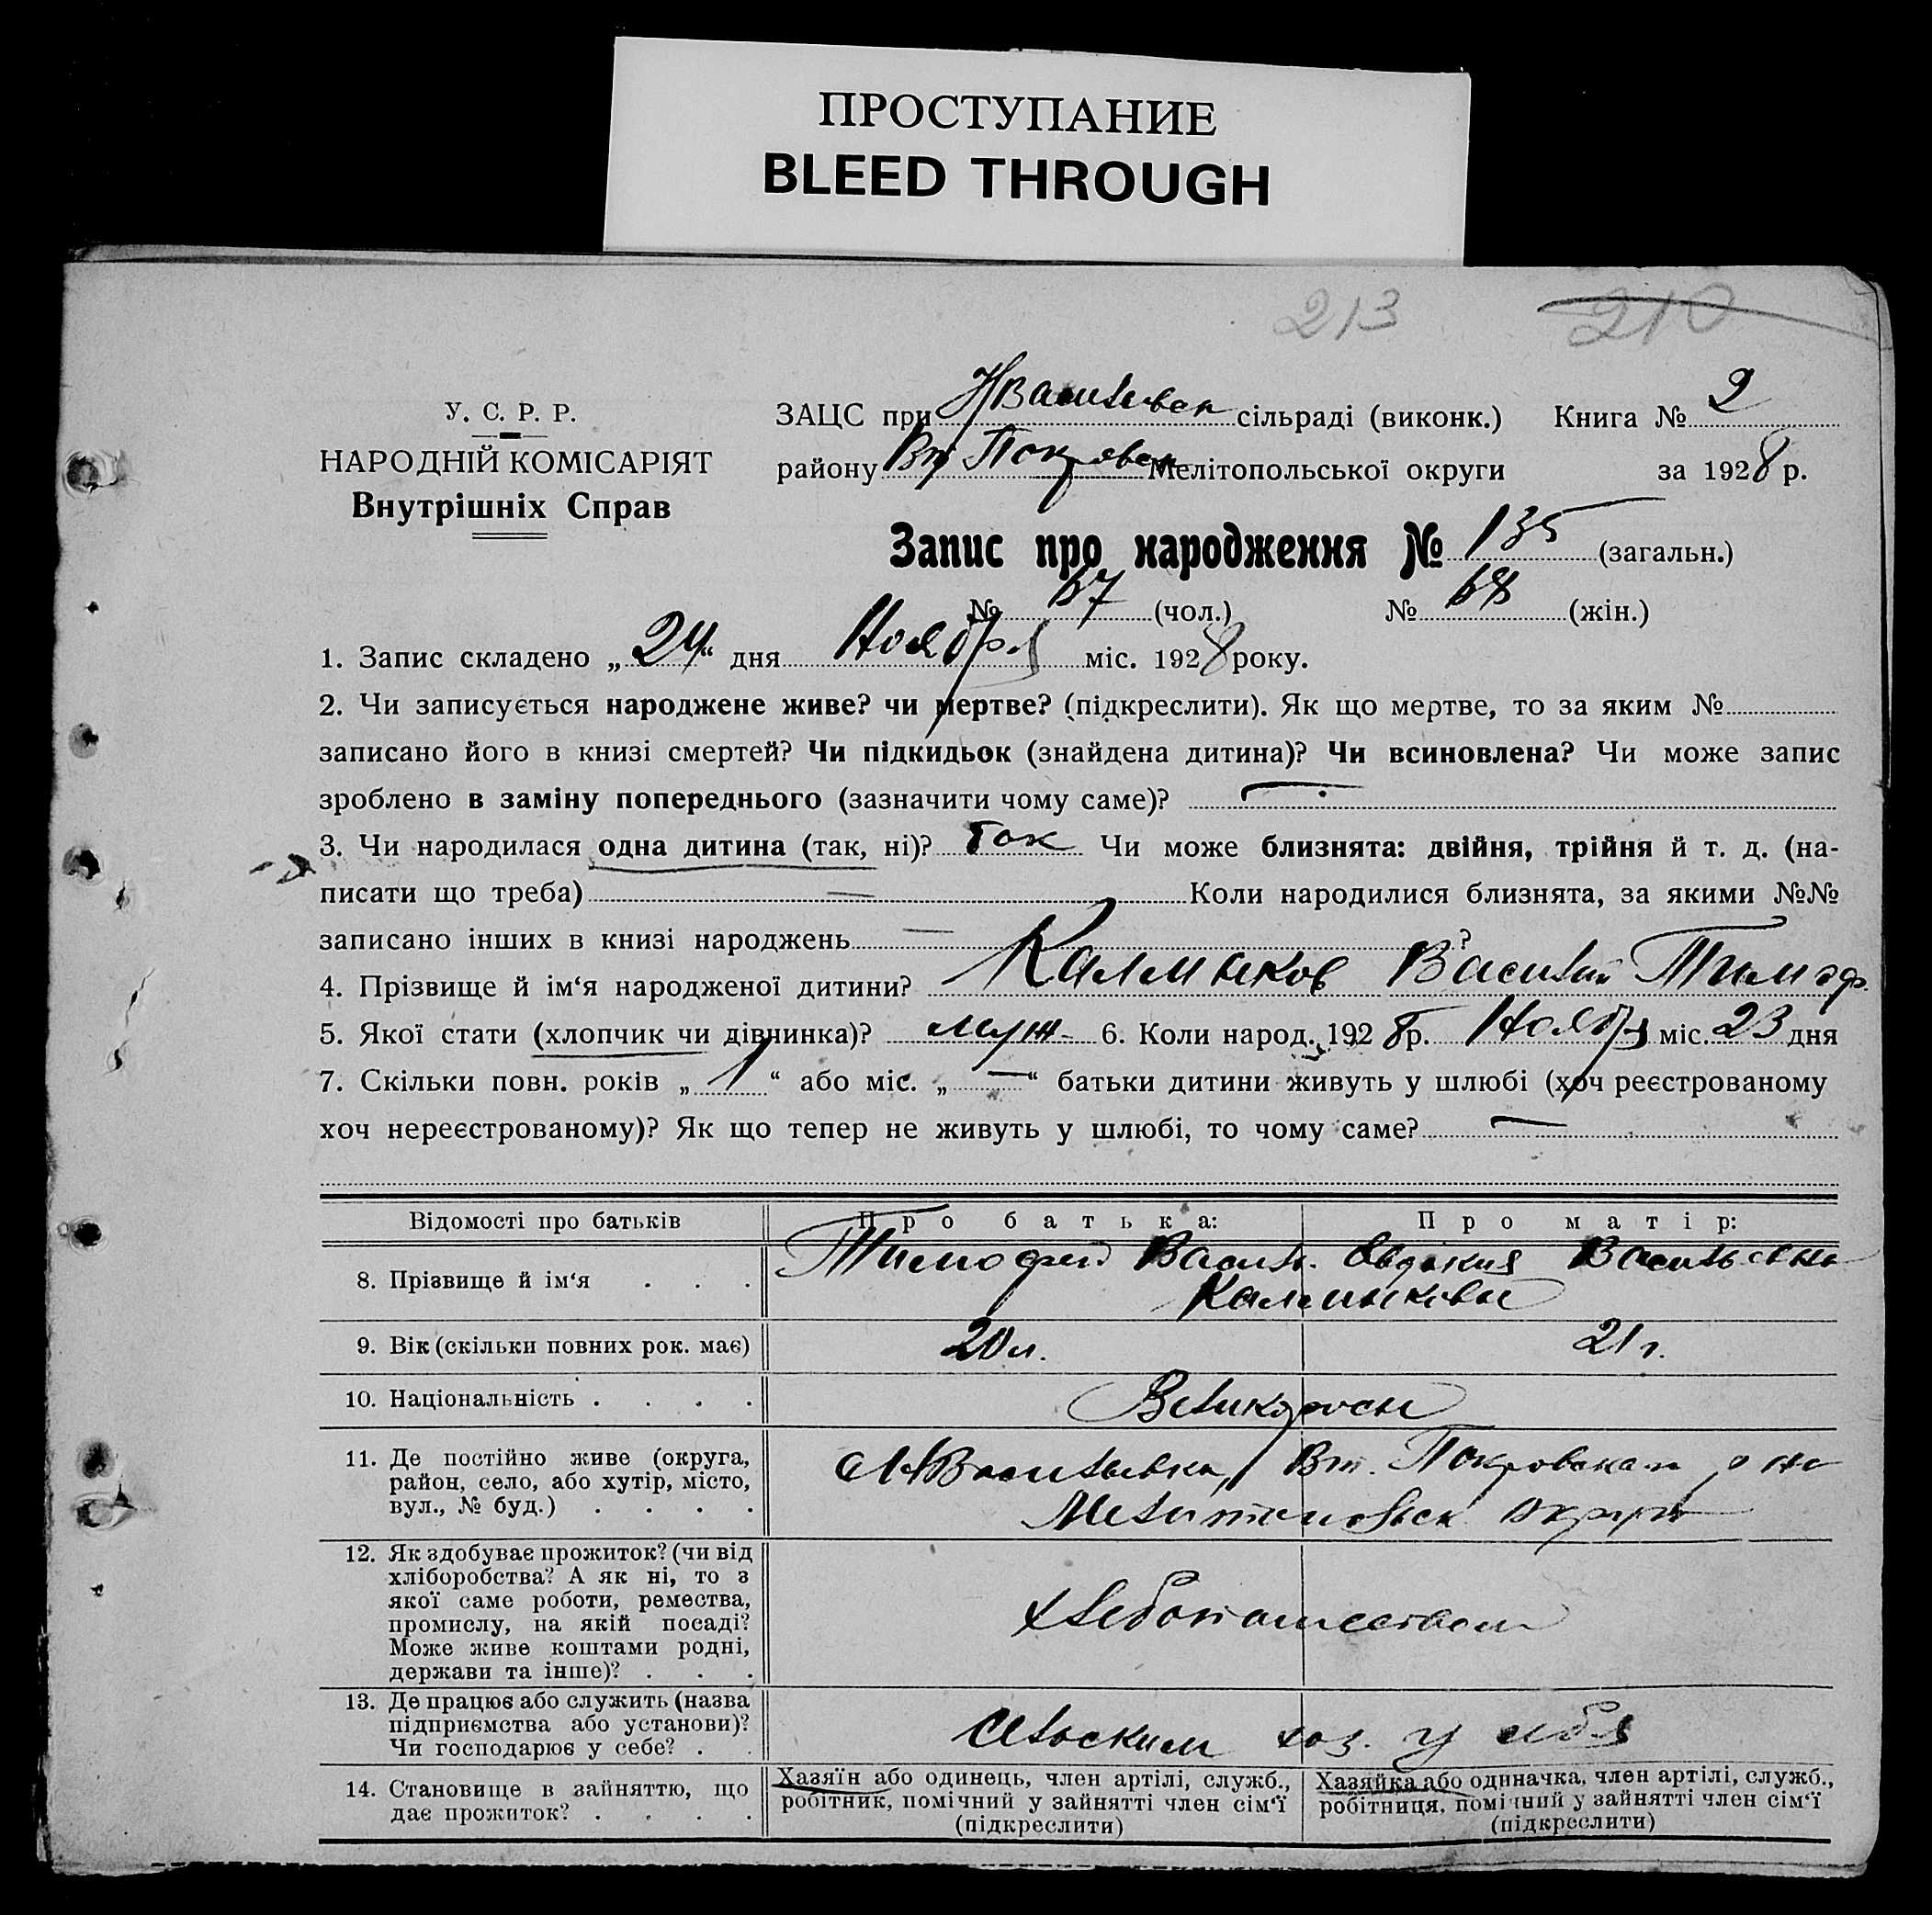 ПРОСТУПАНИЕ
BLEED THROUGH
213 210
У. С. Р. Р.
НАРОДНІЙ КОМІСАРІЯТ
Внутрішніх Справ
ЗАЦС при НВасильевск сільраді (виконк.) Книга № 2
району Вт Покровск Мелітопольської округи за 1928 р.
Запис про народження № 135 (загальн.)
№ 67 (чол.) № 68 (жін.)
1. Запис складено „24“ дня Ноября міс. 1928 року.
2. Чи записується народжене живе? чи мертве? (підкреслити). Як що мертве, то за яким №
записано його в книзі смертей? Чи підкидьок (знайдена дитина)? Чи всиновлена? Чи може запис
зроблено в заміну попереднього (зазначити чому саме)? —
3. Чи народилася одна дитина (так, ні)? Так Чи може близнята: двійня, трійня й т. д. (на-
писати що треба) — Коли народилися близнята, за якими №№
записано інших в книзі народжень — ?
4. Прізвище й ім‘я народженої дитини? Калмыков Василий Тимоф.
5. Якої стати (хлопчик чи дівчинка)? муж. 6. Коли народ. 1928 р. Ноября міс. 23 дня
7. Скільки повн. років „1“ або міс. „—“ батьки дитини живуть у шлюбі (хоч реєстрованому
хоч нереєстрованому)? Як що тепер не живуть у шлюбі, то чому саме? —
Відомості про батьків Про батька: Про матір:
8. Прізвище й ім‘я . . . Тимофей Васил. Евдокия Васильевна
Калмыковы
9. Вік (скільки повних рок. має) 20 л. 21 г.
10. Національність . . . . Великороссы
11. Де постійно живе (округа, район, село, або хутір, місто, вул., № буд.) . . . . НВасильевка, Вт. Покровская р на
Мелитопольск округи
12. Як здобуває прожиток? (чи від хліборобства? А як ні, то з якої саме роботи, ремества, промислу, на якій посаді? Може живе коштами родні, держави та інше)? . . . хлебопашеством
13. Де працює або служить (назва підприємства або установи)? Чи господарює у себе? . . сельским хоз. у себя
14. Становище в зайняттю, що дає прожиток? . . . . Хазяїн або одинець, член артілі, служб., робітник, помічний у зайнятті член сім‘ї (підкреслити) Хазяйка або одиначка, член артілі, служб., робітниця, помічний у зайнятті член сім‘ї (підкреслити)